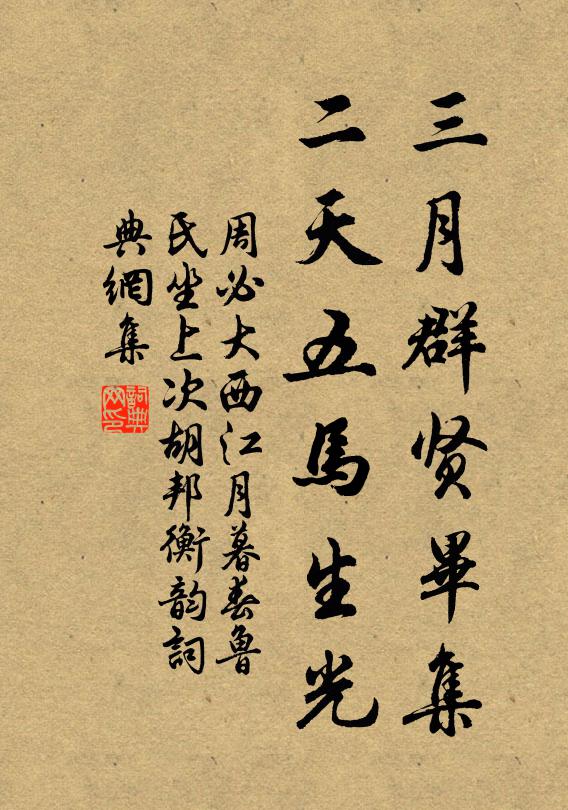 三月群贤畢集
二天五馬生光
周必大西江月暮春魯
民坐上次胡邦衡韵詞
典網集
詞典网印